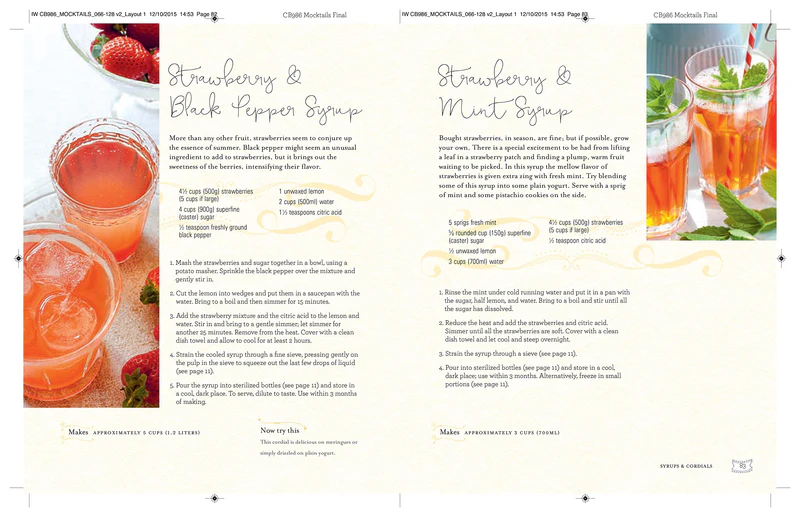 IW CB986_MOCKTAILS_066-128 v2_Layout 1 12/10/2015 14:53 Page 82
CB986 Mocktails Final
Strawberry &
Black Pepper Syrup
More than any other fruit, strawberries seem to conjure up
the essence of summer. Black pepper might seem an unusual
ingredient to add to strawberries, but it brings out the
sweetness of the berries, intensifying their flavor.
4½ cups (500g) strawberries
(5 cups if large)
4 cups (900g) superfine
(caster) sugar
½ teaspoon freshly ground
black pepper
1 unwaxed lemon
2 cups (500ml) water
1½ teaspoons citric acid
1. Mash the strawberries and sugar together in a bowl, using a
potato masher. Sprinkle the black pepper over the mixture and
gently stir in.
2. Cut the lemon into wedges and put them in a saucepan with the
water. Bring to a boil and then simmer for 15 minutes.
3. Add the strawberry mixture and the citric acid to the lemon and
water. Stir in and bring to a gentle simmer; let simmer for
another 25 minutes. Remove from the heat. Cover with a clean
dish towel and allow to cool for at least 2 hours.
4. Strain the cooled syrup through a fine sieve, pressing gently on
the pulp in the sieve to squeeze out the last few drops of liquid
(see page 11).
5. Pour the syrup into sterilized bottles (see page 11) and store in
a cool, dark place. To serve, dilute to taste. Use within 3 months
of making.
Makes APPROXIMATELY 5 CUPS (1.2 LITERS)
Now try this
This cordial is delicious on meringues or
simply drizzled on plain yogurt.
IW CB986_MOCKTAILS_066-128 v2_Layout 1 12/10/2015 14:53 Page 83
CB986 Mocktails Final
Strawberry &
Mint Syrup
Bought strawberries, in season, are fine; but if possible, grow
your own. There is a special excitement to be had from lifting
a leaf in a strawberry patch and finding a plump, warm fruit
waiting to be picked. In this syrup the mellow flavor of
strawberries is given extra zing with fresh mint. Try blending
some of this syrup into some plain yogurt. Serve with a sprig
of mint and some pistachio cookies on the side.
5 sprigs fresh mint
rounded cup (150g) superfine
(caster) sugar
½ unwaxed lemon
3 cups (700ml) water
4½ cups (500g) strawberries
(5 cups if large)
½ teaspoon citric acid
1. Rinse the mint under cold running water and put it in a pan with
the sugar, half lemon, and water. Bring to a boil and stir until all
the sugar has dissolved.
2. Reduce the heat and add the strawberries and citric acid.
Simmer until all the strawberries are soft. Cover with a clean
dish towel and let cool and steep overnight.
3. Strain the syrup through a sieve (see page 11).
4. Pour into sterilized bottles (see page 11) and store in a cool,
dark place; use within 3 months. Alternatively, freeze in small
portions (see page 11).
Makes APPROXIMATELY 3 CUPS (700ML)
SYRUPS & CORDIALS 83